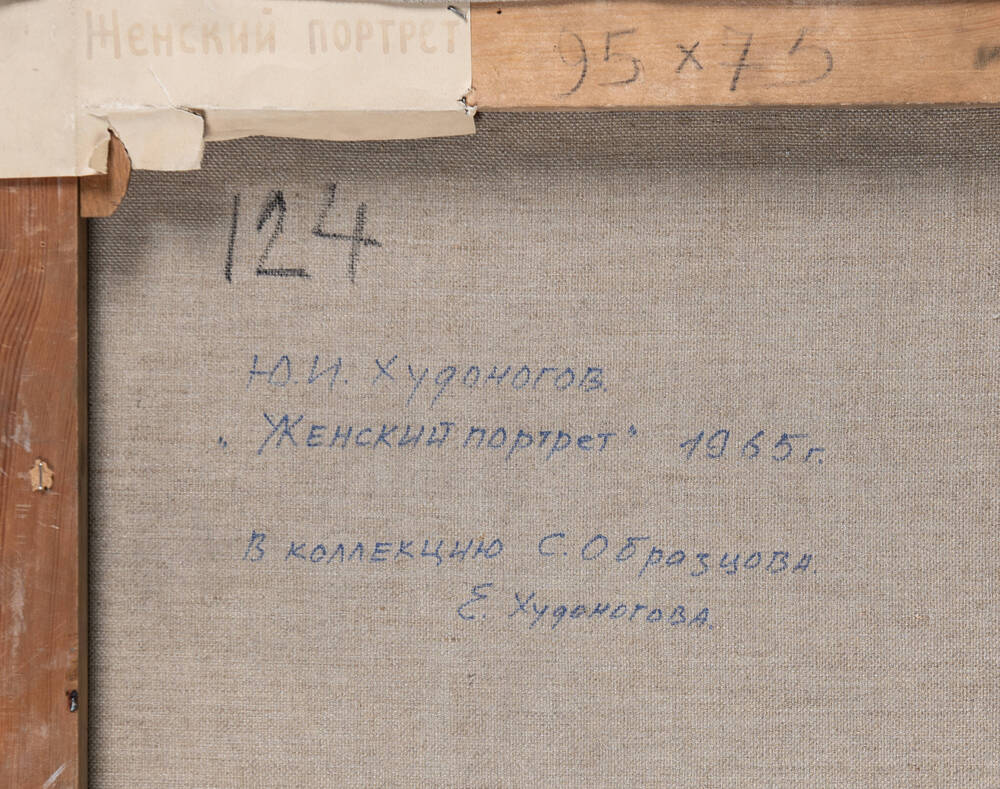 Женский портрет
95 x 75
124
Ю.И. Худоногов.
„Женский портрет" 1965г.
В коллекцию С. Образцова.
Е. Худоногова.